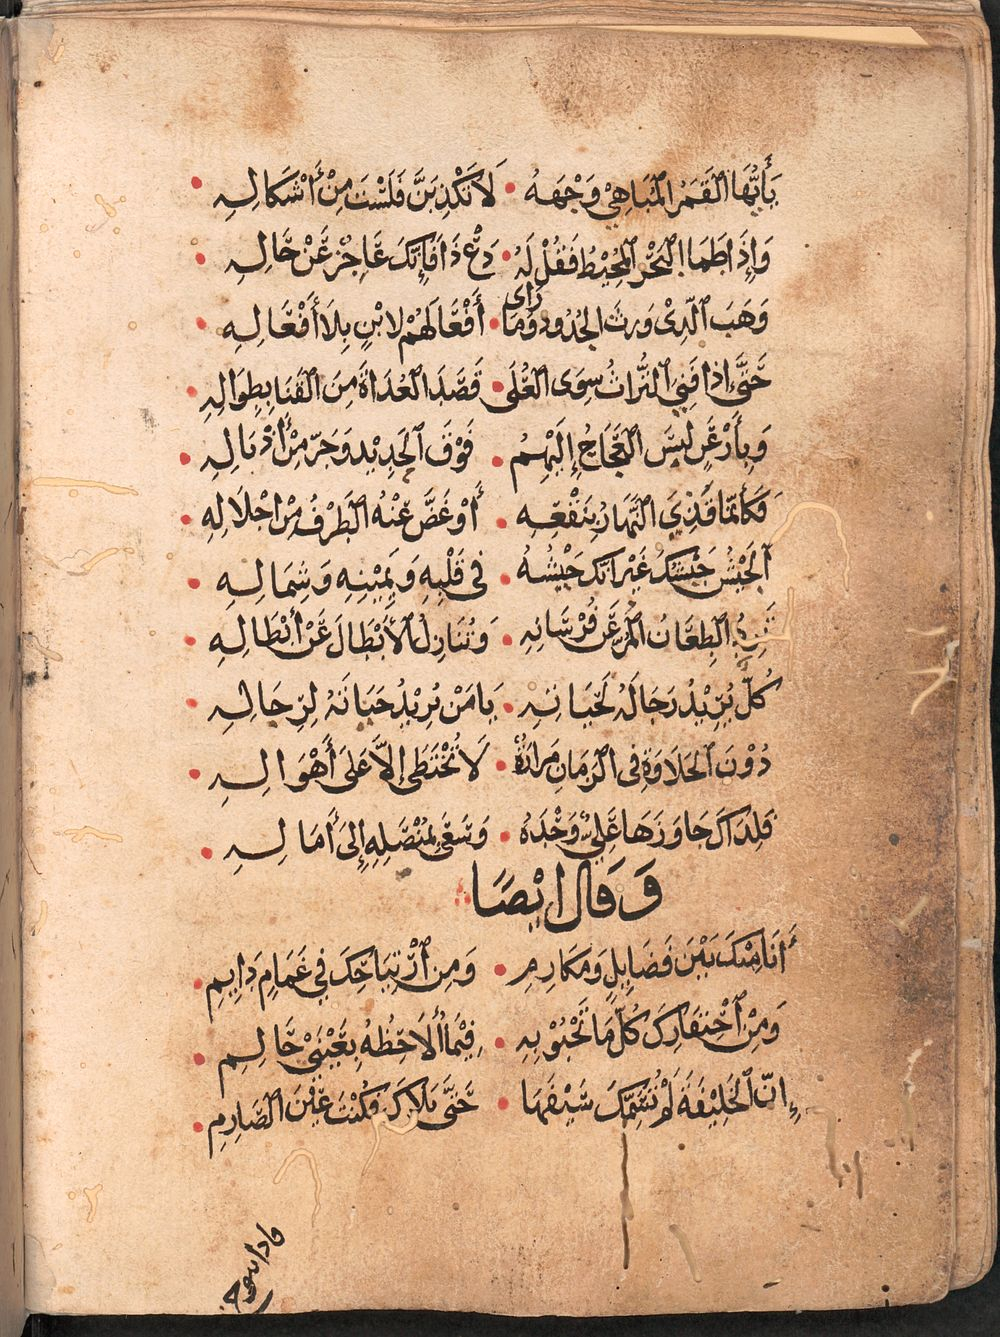 يَأَيُّهَا ٱلْقَمَرُ المُبَاهِيْ وَجْهَهُ • لَا تَكْذِبَنَّ فَلَسْتَ مِنْ أَشْكَالِهِ •
وَإِذَا طَمَا البَحْرُ ٱلمُحِيْطُ فَقُلْ لَهُ • دَعْ ذَا فَإِنَّكَ عَاجِزٌ عَنْ حَالِهِ •
وَهَبَ ٱلَّذِىْ وَرِثَ الجُدُودَ وَمَا رَاى • أَفْعَالَهُمْ لِابْنٍ بِلَا أَفْعَالِهِ •
حَتَّى إِذَا فَنِيَ ٱلتُّرَاثُ سِوَى ٱلعُلَى • قَصَدَ العُدَاةَ مِنَ القَنَا بِطِوَالِهِ •
وَبِأَرْعَنٍ لَبِسَ العَجَاجُ إِلَيْهِمُ • فَوْقَ الحَدِيْدِ وَجَرَّ مِنْ أَذْيَالِهِ •
فَكَأَنَّمَا قَذِيَ النَّهَارُ بِنَقْعِهِ • أَوْ غَضَّ عَنْهُ ٱلطَّرْفُ مِنْ اجْلَالِهِ •
ٱلجَيْشُ جَيْشُكَ غَيْرَ انَّكَ جَيْشُهُ • فِى قَلْبِهِ وَيَمِيْنِهِ وَشِمَالِهِ •
تَرِدُ ٱلطِعَانَ المُرَّ عَنْ فُرْسَانِهِ • وَتُنَازِلُ ٱلأَبْطَالَ عَنْ أَبْطَالِهِ •
كُلٌّ يُرِيْدُ رِجَالَهُ لِحَيَاتِهِ • يَا مَنْ يُرِيْدُ حَيَاتَهُ لِرِجَالِهِ •
دُوْنَ ٱلحَلَاوَةِ فِى الزَمَانِ مَرَارَةٌ • لَا تُخْتَطَى إِلَّا عَلَى أَهْوَالِهِ •
فَلِذَاكَ جَاوَزَهَا عَلِيٌّ وَحْدَهُ • وَسَعَى بِمُنْصُلِهِ إِلَى أَمَالِهِ •
وَقَالَ ايْضًا
أَنَا مِنْكَ بَيْنَ فَضَايِلٍ وَمَكَارِمِ • وَمِنِ ٱرْتِيَاحِكَ فِي غَمَامٍ دَايِمِ •
وَمِنْ ٱحْتِقَارِكَ كُلَّ مَا تَحْبُوْ بِهِ • فِيْمَا أُلَاحِظُهُ بِعَيْنَيْ حَالِمِ •
إِنَّ ٱلخَلِيْفَةَ لَمْ يُسَمِّكَ سَيْفَهَا • حَتَّى بَلَاكَ فَكُنْتَ عَيْنَ الصَّارِمِ •